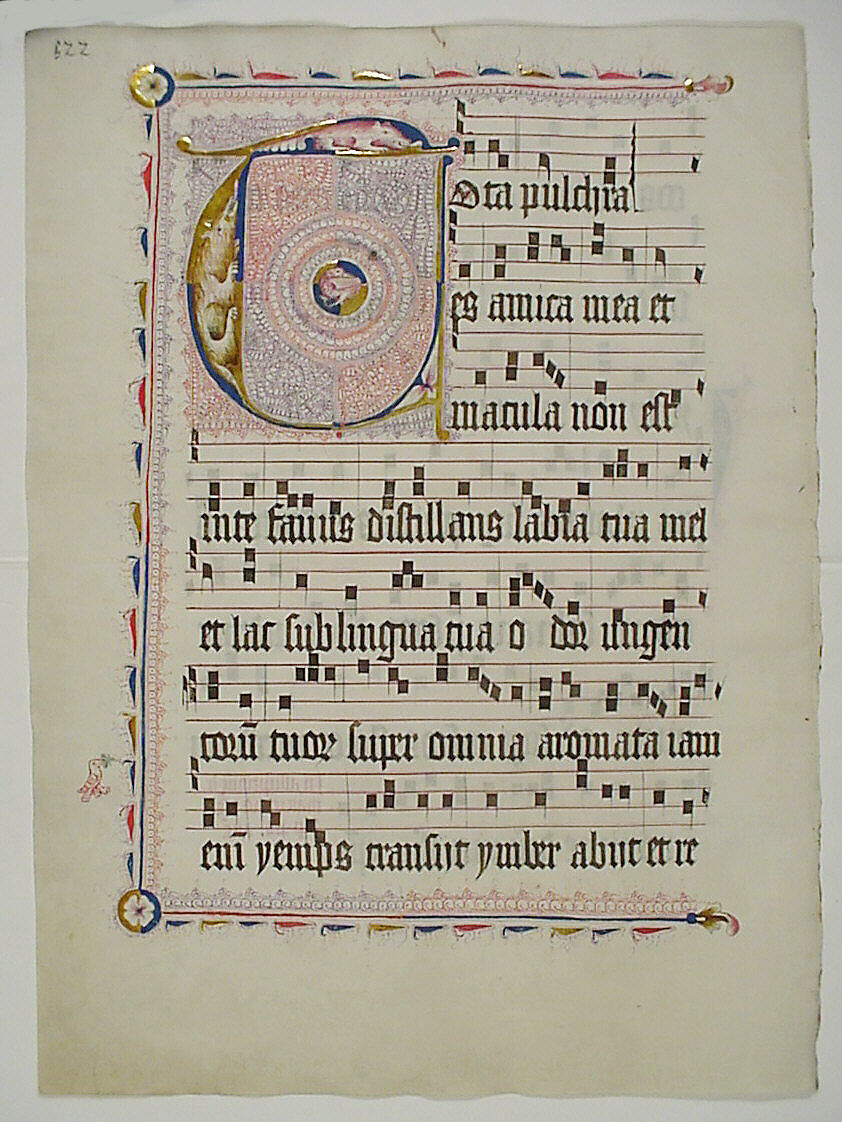 622
Tota pulchra
es amica mea et
macula non est
inte fauus distillans labia tua mel
et lac sub lingua tua o dor ungen
torū tuoꝝ super omnia aromata iam
eni᷉ yemps transiit ymber abiit et re